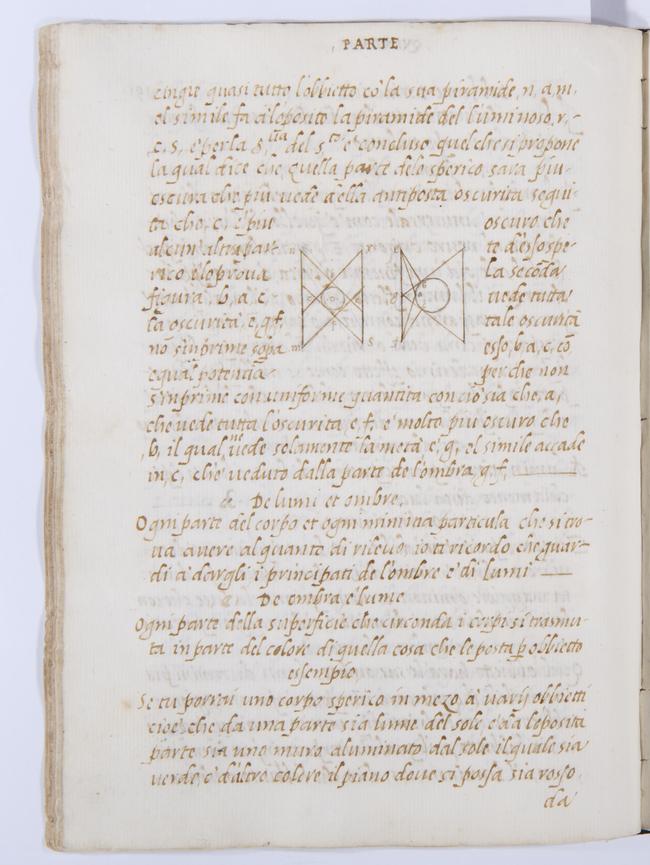 PARTE
cingie quasi tutto l'obbietto co la sua piramide, n, a, m,
el simile fa d'loposito la piramide del luminoso, r,
c, s, e per la 8,ua del 5to e concluso quel che si propone
la qual dice che, quella parte delo sperico sara piu
oscura che piu vede della antiposta oscurita sequi
ta che, c, e piu oscuro che
alcun altra part te d'esso spe
rico elo prova la seconda
figura, b, a, c, vede tutta
la oscurita, e, g, f, tale oscurità
nō sinprime sopa esso, b, a, c, cō
equal potencia perche non
sinprime con uniforme quantita conciosia che, a,
che vede tutta l'oscurita e, f, e' molto piu oscuro che
,b, il qual ne vede solamente la meta e, g, el simile accade
in, c, che veduto dalla parte de l'ombra g, f,
De lumi et ombre,
Ogni parte del corpo et ogni minima particula che si tro
va avere alquanto di rilievo, io ti ricordo che guar
di a dargli i principati de l'ombre e' di lumi
De ombra e lume
Ogni parte della superficie che circonda i corpi si trasmu
ta in parte del colore di quella cosa che le posta p obbietto
essempio,
Se tu porrai uno corpo sperico in mezo a varij obbietti
cioe che da una parte sia lume del sole e da l'oposita
parte sia uno muro aluminato dal sole il quale sia
verde, e d'altro colore il piano dove si possa sia rosso
da